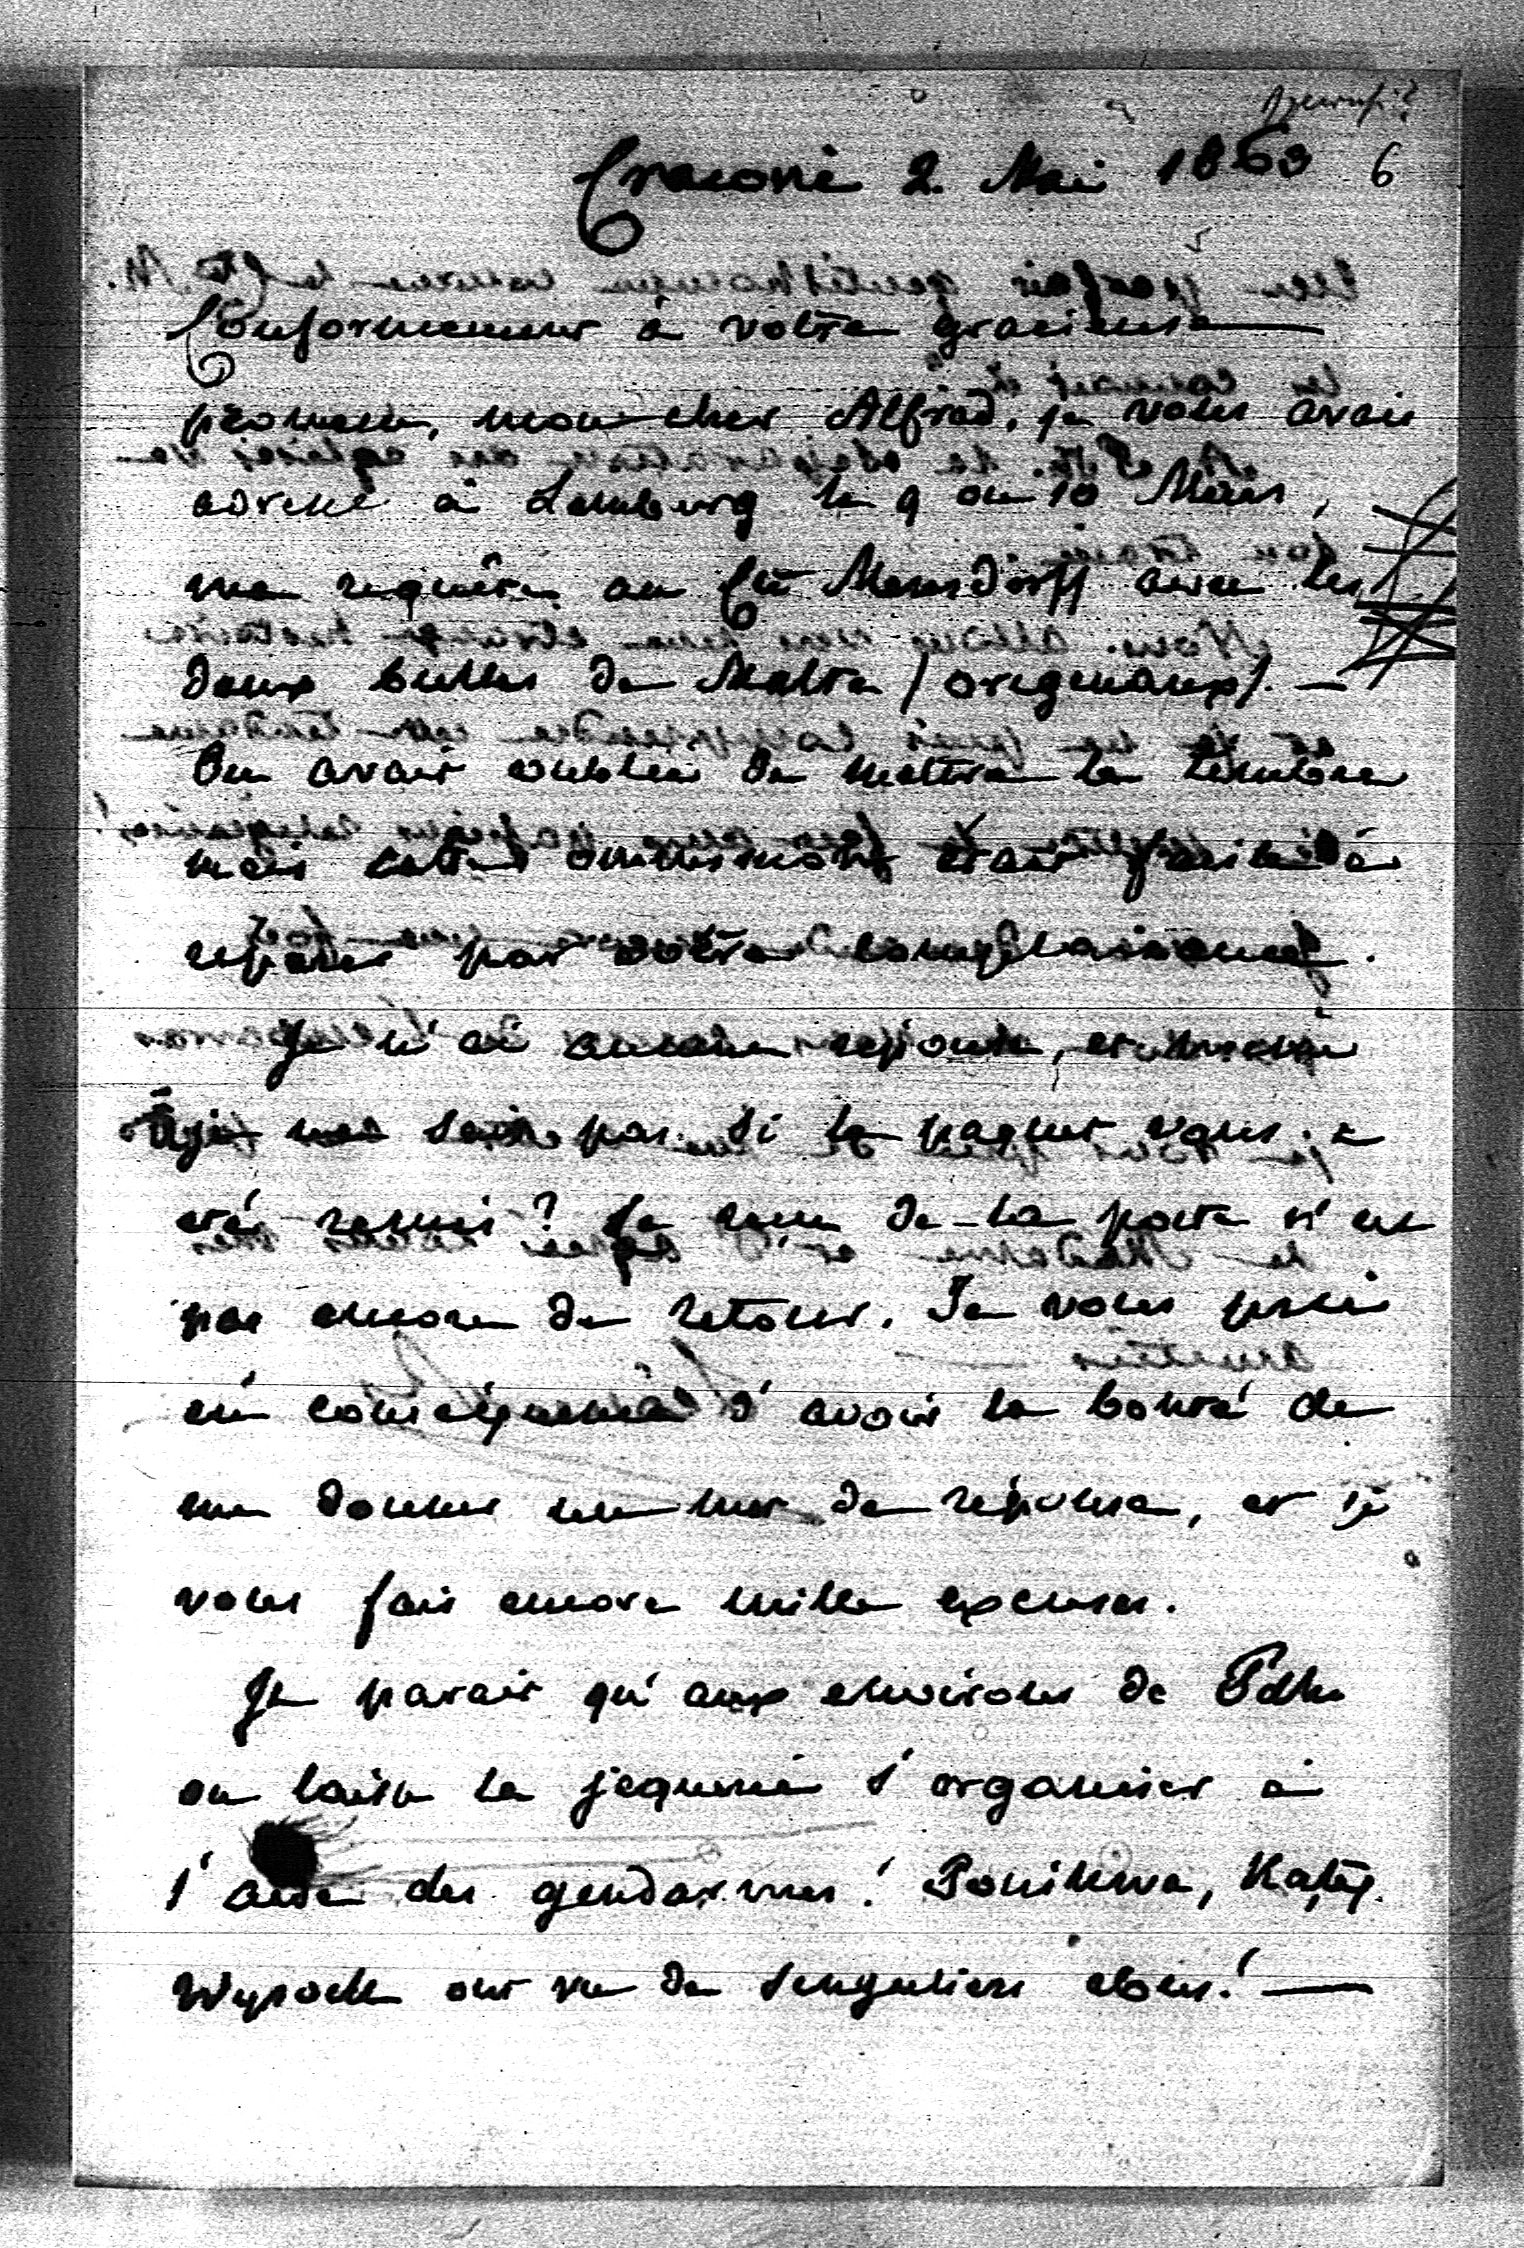 Cracovie 2. Mai 1863 6
Conformement à votre gracieuse
promesse, mon cher Alfred, je vous avais
adressé à Lemberg le 9 ou 10 Mars,
ma requête au Cte Mensdorff avec les
deux bulles de Malte (originaux). —
On avait oublié de mettre le timbre
mais cette ommission était facile à
reparer par votre complaisance.
Je n'ai aucune reponse, et
je ne sais pas si le paquet vous a
été remis? Le reçu de la poste n'est
pas encore de retour. Je vous prie
en conséquence d'avoir la bonté de
me donner un mot de réponse, et je
vous fais encore mille excuses.
Il parait qu'aux environs de
on laisse la jaquerie s'organiser à
l'aide des gendarmes! Ponikwa,
Wysock ont vu de singuliers abus! —